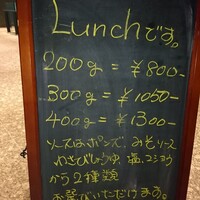 Lunchです。
200g = ¥800-
300g = ¥1050-
400g = ¥1300-
ソースはポンズ、みそソース
わさびじょうゆ、塩、コショウ
から2種類
お選びいただけます。